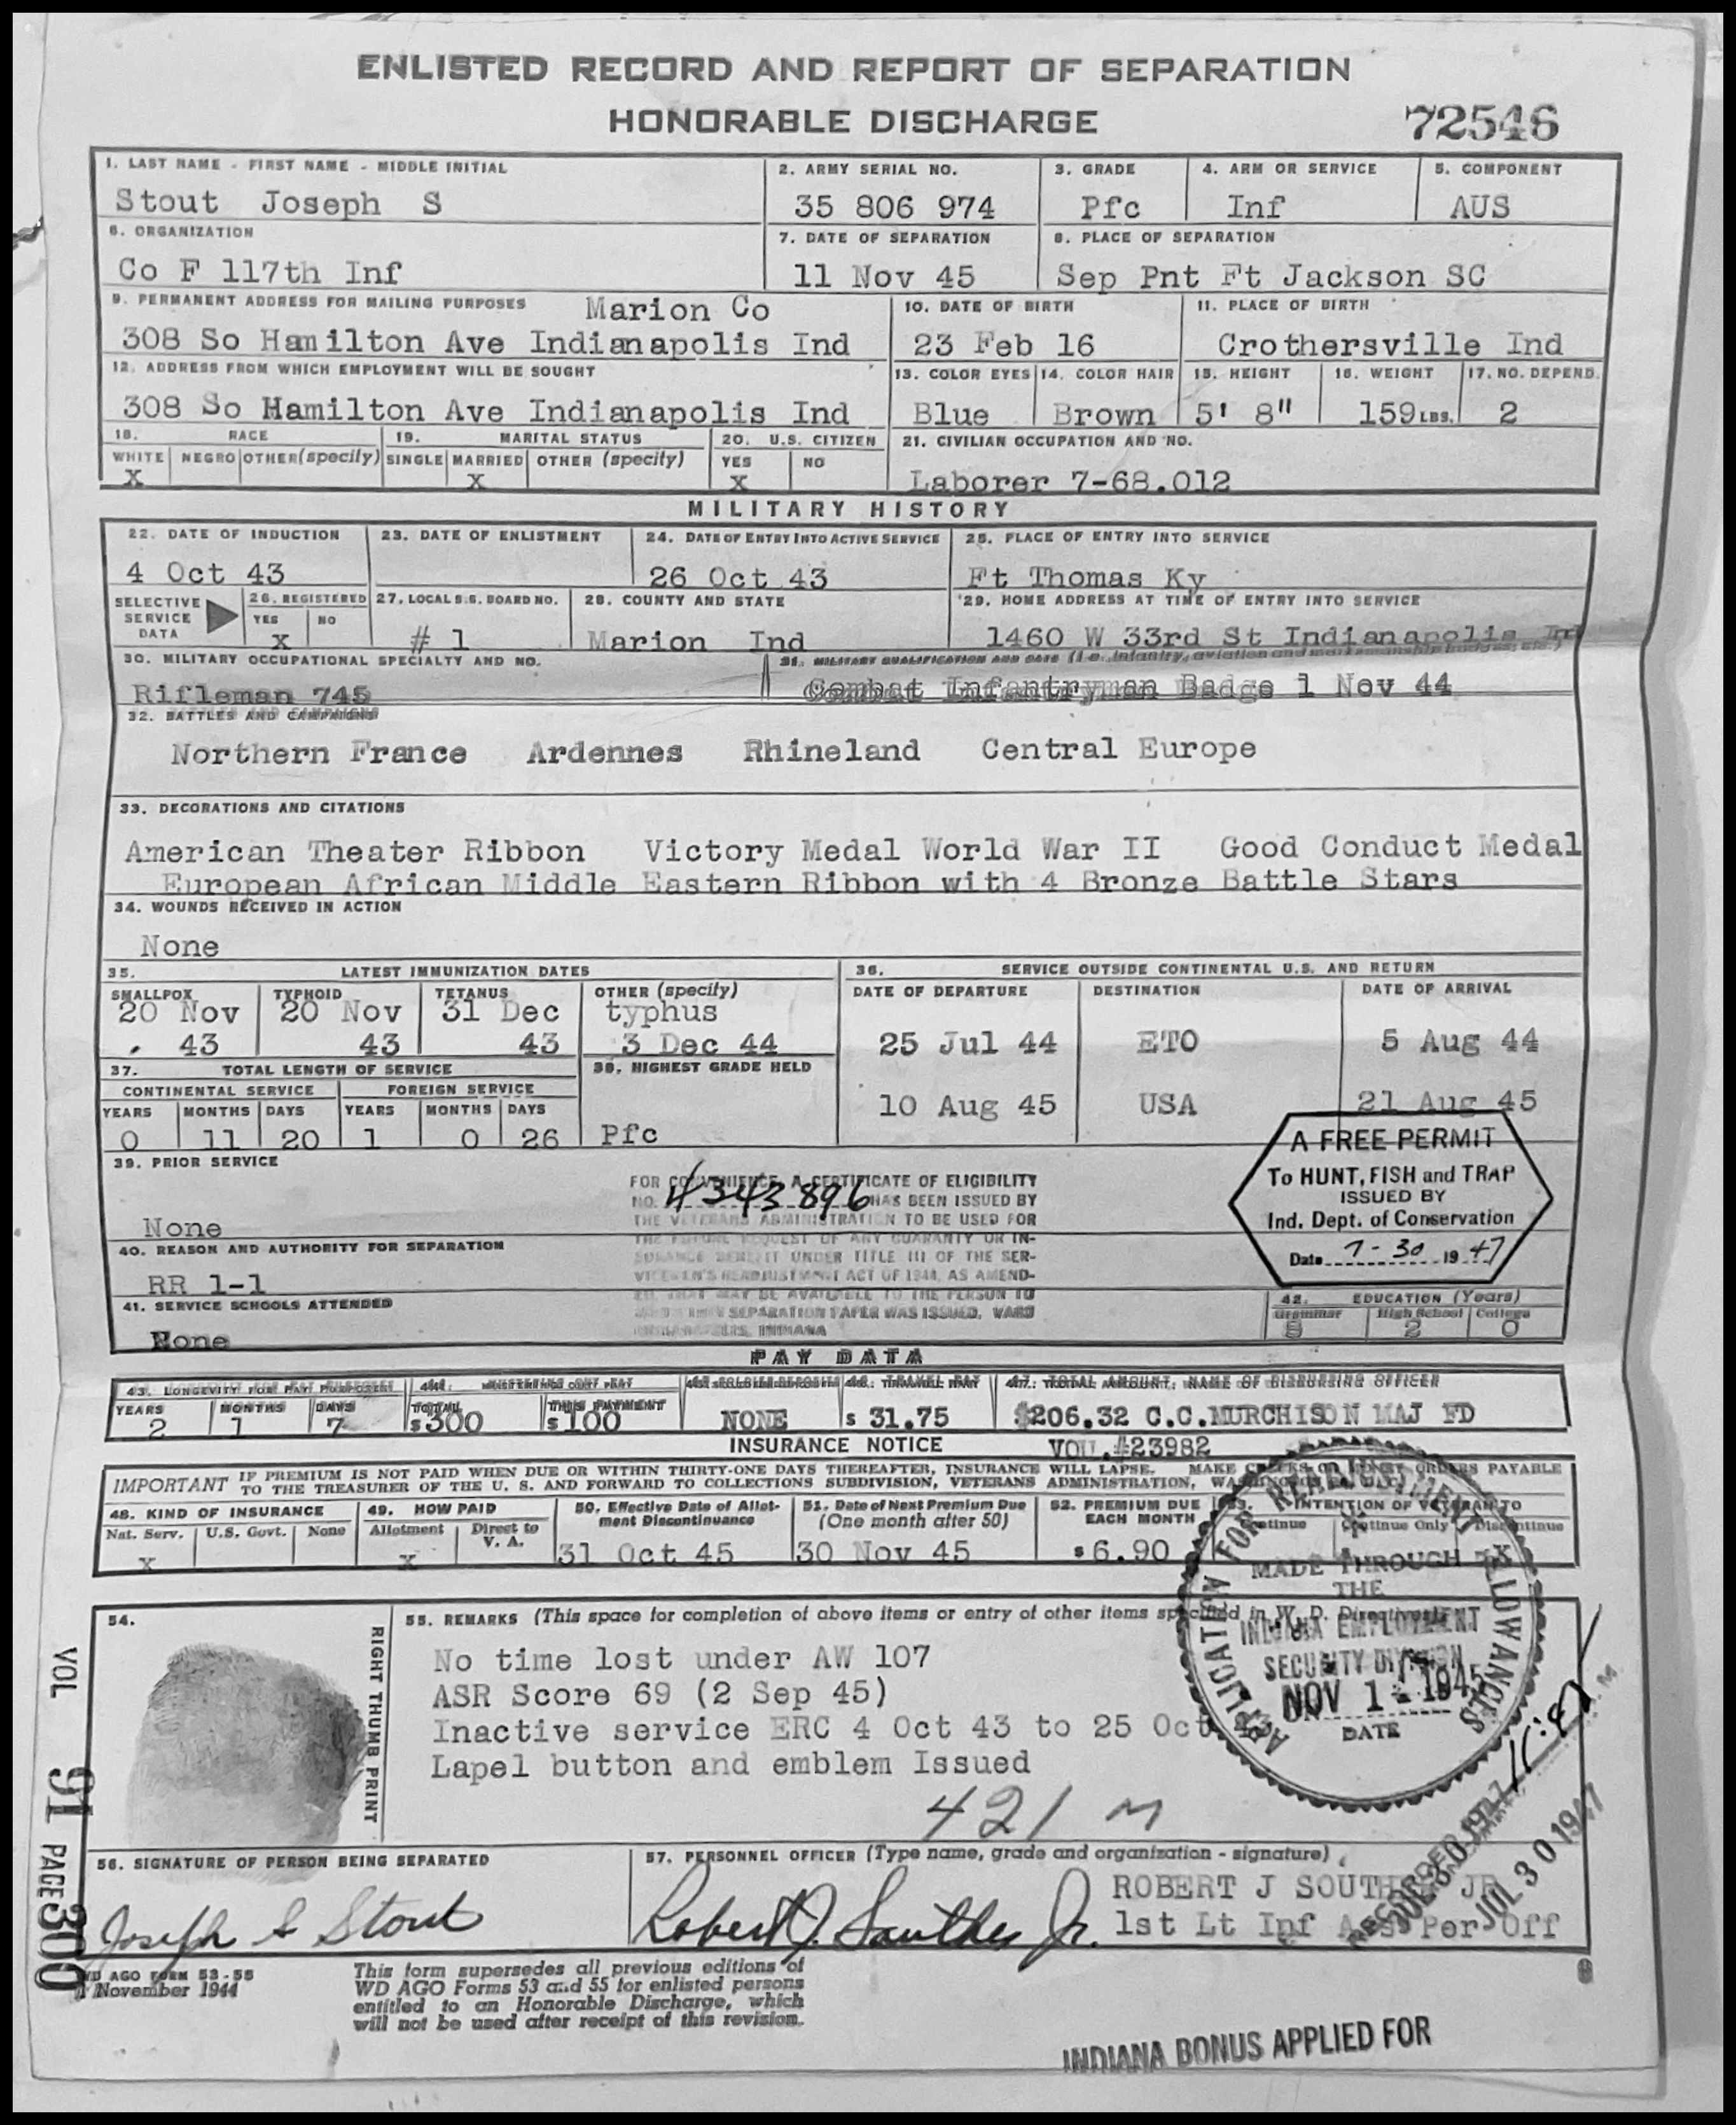 ENLISTED RECORD AND REPORT OF SEPARATION
HONORABLE DISCHARGE
72546
1. LAST NAME - FIRST NAME - MIDDLE INITIAL
Stout Joseph S
2. ARMY SERIAL NO.
35 806 974
3. GRADE
Pfc
4. ARM OR SERVICE
Inf
5. COMPONENT
AUS
6. ORGANIZATION
Co F 117th Inf
7. DATE OF SEPARATION
11 Nov 45
8. PLACE OF SEPARATION
Sep Pnt Ft Jackson SC
9. PERMANENT ADDRESS FOR MAILING PURPOSES
Marion Co
308 So Hamilton Ave Indianapolis Ind
10. DATE OF BIRTH
23 Feb 16
11. PLACE OF BIRTH
Crothersville Ind
12. ADDRESS FROM WHICH EMPLOYMENT WILL BE SOUGHT
308 So Hamilton Ave Indianapolis Ind
13. COLOR EYES
Blue
14. COLOR HAIR
Brown
15. HEIGHT
5' 8"
16. WEIGHT
159 LBS.
17. NO. DEPEND.
2
18. RACE
WHITE NEGRO OTHER (specify)
X
19. MARITAL STATUS
SINGLE MARRIED OTHER (specify)
X
20. U.S. CITIZEN
YES NO
X
21. CIVILIAN OCCUPATION AND NO.
Laborer 7-68.012
MILITARY HISTORY
22. DATE OF INDUCTION
4 Oct 43
23. DATE OF ENLISTMENT
24. DATE OF ENTRY INTO ACTIVE SERVICE
26 Oct 43
25. PLACE OF ENTRY INTO SERVICE
Ft Thomas Ky
SELECTIVE SERVICE DATA
26. REGISTERED
YES NO
X
27. LOCAL S.S. BOARD NO.
# 1
28. COUNTY AND STATE
Marion Ind
29. HOME ADDRESS AT TIME OF ENTRY INTO SERVICE
1460 W 33rd St Indianapolis Ind
30. MILITARY OCCUPATIONAL SPECIALTY AND NO.
Rifleman 745
31. MILITARY QUALIFICATION AND DATE (i.e., infantry, aviation and marksmanship badges, etc.)
Combat Infantryman Badge 1 Nov 44
32. BATTLES AND CAMPAIGNS
Northern France Ardennes Rhineland Central Europe
33. DECORATIONS AND CITATIONS
American Theater Ribbon Victory Medal World War II Good Conduct Medal
European African Middle Eastern Ribbon with 4 Bronze Battle Stars
34. WOUNDS RECEIVED IN ACTION
None
35. LATEST IMMUNIZATION DATES
SMALLPOX
20 Nov
43
TYPHOID
20 Nov
43
TETANUS
31 Dec
43
OTHER (specify)
typhus
3 Dec 44
36. SERVICE OUTSIDE CONTINENTAL U.S. AND RETURN
DATE OF DEPARTURE DESTINATION DATE OF ARRIVAL
25 Jul 44 ETO 5 Aug 44
10 Aug 45 USA 21 Aug 45
37. TOTAL LENGTH OF SERVICE
CONTINENTAL SERVICE FOREIGN SERVICE
YEARS MONTHS DAYS YEARS MONTHS DAYS
0 11 20 1 0 26
38. HIGHEST GRADE HELD
Pfc
39. PRIOR SERVICE
None
FOR CONVENIENCE, A CERTIFICATE OF ELIGIBILITY
NO. 4343896 HAS BEEN ISSUED BY
THE VETERANS ADMINISTRATION TO BE USED FOR
THE FUTURE REQUEST OF ANY GUARANTY OR IN-
SURANCE BENEFIT UNDER TITLE III OF THE SER-
VICEMEN'S READJUSTMENT ACT OF 1944, AS AMEND-
ED, THAT MAY BE AVAILABLE TO THE PERSON TO
WHOM THIS SEPARATION PAPER WAS ISSUED.
INDIANAPOLIS, INDIANA
A FREE PERMIT
To HUNT, FISH and TRAP
ISSUED BY
Ind. Dept. of Conservation
Date 7-30 1947
40. REASON AND AUTHORITY FOR SEPARATION
RR 1-1
41. SERVICE SCHOOLS ATTENDED
None
42. EDUCATION (Years)
Grammar High School College
8 2 0
PAY DATA
43. LONGEVITY FOR PAY PURPOSES
YEARS MONTHS DAYS
2 1 7
44. MUSTERING OUT PAY
TOTAL THIS PAYMENT
$300 $100
45. SOLDIER DEPOSITS
NONE
46. TRAVEL PAY
$ 31.75
47. TOTAL AMOUNT, NAME OF DISBURSING OFFICER
$206.32 C.C.MURCHISON MAJ FD
INSURANCE NOTICE
VOU.#23982
IMPORTANT IF PREMIUM IS NOT PAID WHEN DUE OR WITHIN THIRTY-ONE DAYS THEREAFTER, INSURANCE WILL LAPSE. MAKE CHECKS OR MONEY ORDERS PAYABLE
TO THE TREASURER OF THE U. S. AND FORWARD TO COLLECTIONS SUBDIVISION, VETERANS ADMINISTRATION,
48. KIND OF INSURANCE
Nat. Serv. U.S. Govt. None
X
49. HOW PAID
Allotment Direct to V. A.
X
50. Effective Date of Allotment Discontinuance
31 Oct 45
51. Date of Next Premium Due
(One month after 50)
30 Nov 45
52. PREMIUM DUE
EACH MONTH
$ 6.90
53. INTENTION OF VETERAN TO
Continue Continue Only Discontinue
X
APPLICATION FOR READJUSTMENT ALLOWANCES
MADE THROUGH
THE
INDIANA EMPLOYMENT
SECURITY DIVISION
NOV 1 1945
DATE
54.
RIGHT THUMB PRINT
55. REMARKS (This space for completion of above items or entry of other items specified in W. D. Directives)
No time lost under AW 107
ASR Score 69 (2 Sep 45)
Inactive service ERC 4 Oct 43 to 25 Oct 43
Lapel button and emblem Issued
421 M
56. SIGNATURE OF PERSON BEING SEPARATED
Joseph S Stout
57. PERSONNEL OFFICER (Type name, grade and organization - signature)
Robert J. Souther Jr.
ROBERT J SOUTHER JR
1st Lt Inf Ass Per Off
RECORDED
JUL 30 1947
JUL 30 1947
VOL 91 PAGE 300
WD AGO FORM 53-55
1 November 1944
This form supersedes all previous editions of
WD AGO Forms 53 and 55 for enlisted persons
entitled to an Honorable Discharge, which
will not be used after receipt of this revision.
INDIANA BONUS APPLIED FOR